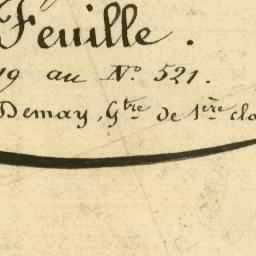 Feuille.
19 au N° 521.
Demay, Gtre de 1ère cla